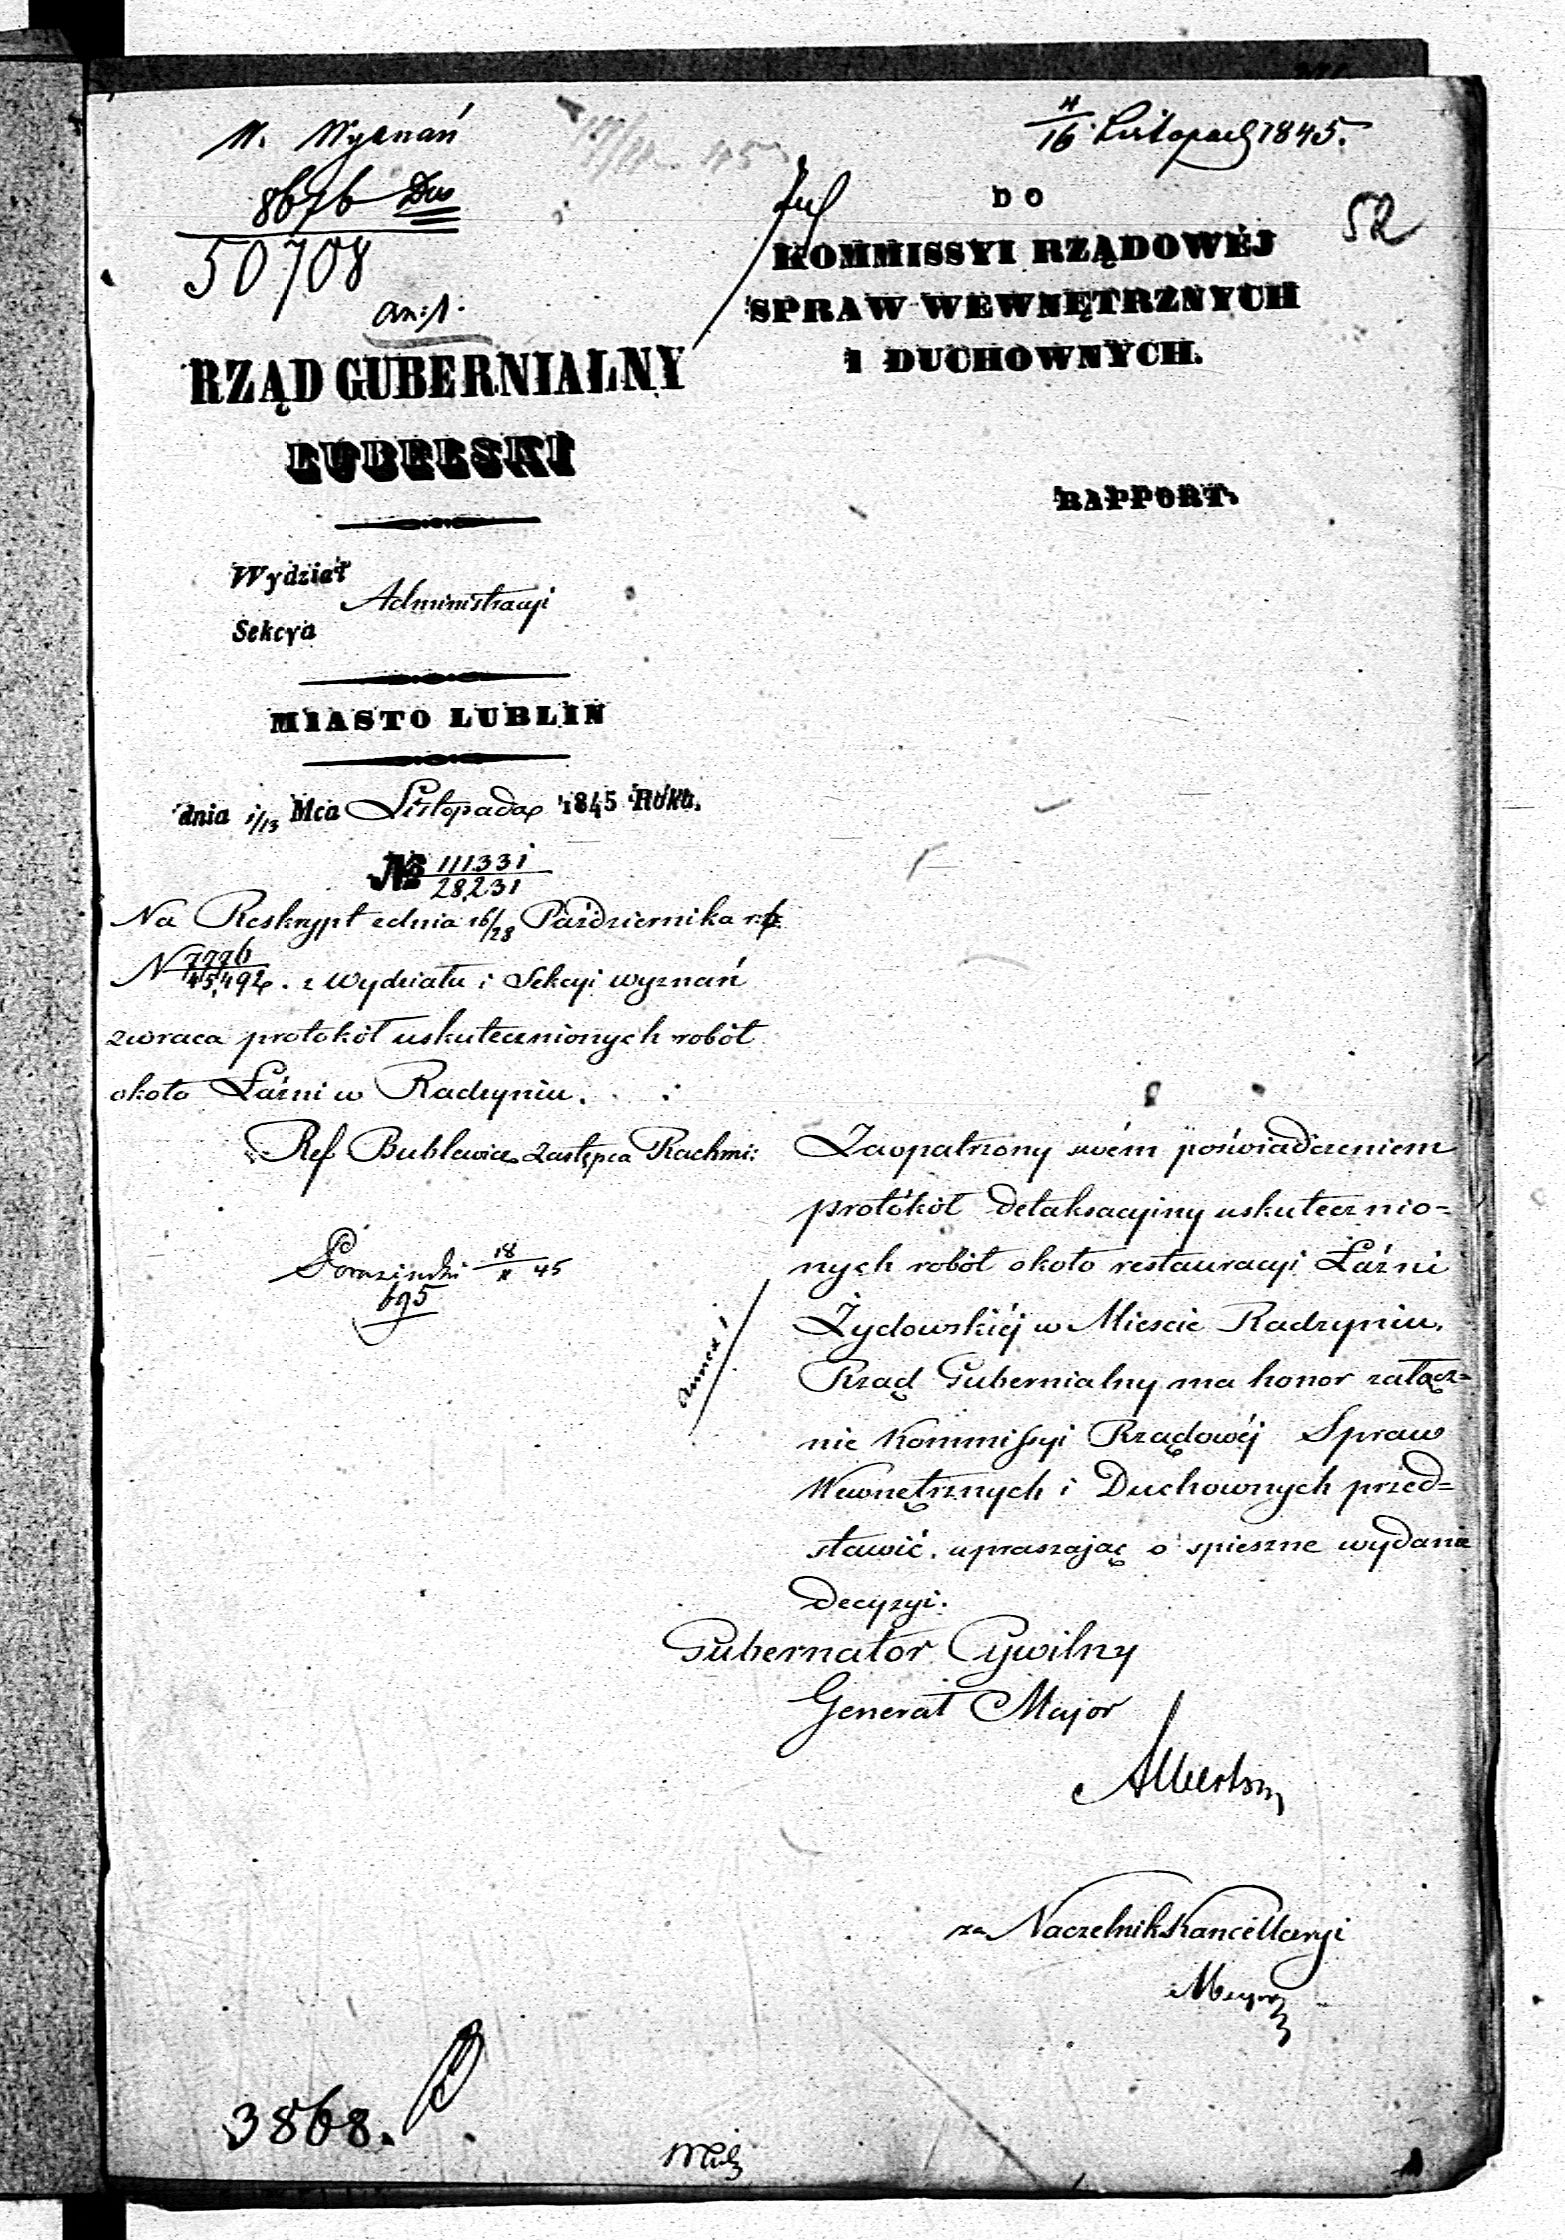 W. Wyznań
8676 Dus
50708
an: 1.
4/16 Listopad 1845.
52
DO
KOMMISSYI RZĄDOWÉJ
SPRAW WEWNĘTRZNYCH
I DUCHOWNYCH.
RAPPORT.
RZĄD GUBERNIALNY
LUBELSKI
Wydział
Administracyi
Sekcya
MIASTO LUBLIN
dnia 1/13 Mca Listopada 1845 Roku.
№ 111331/28,231
Na Reskrypt z dnia 16/28 Października r: b:
N 7776/45,492. z Wydziału i Sekcyi wyznań
zwraca protokół uskutecznionych robót
około Łaźni w Radzyniu.
Ref Bublewicz Zastępca Rachmi:
18/11 45
695
annex 1
Zaopatrzony swém poświadczeniem
protokół detaksacyjny uskutecznio=
nych robót około restauracyi Łaźni
Żydowskiéj w Miescie Radzyniu,
Rząd Gubernialny ma honor załącz=
nie Kommissyi Rządowéj Spraw
Wewnętrznych i Duchownych przed=
stawić, upraszając o spieszne wydanie
decyzyi.
Gubernator Cywilny
Generał Major
Albertow
za Naczelnik Kancellaryi
3868.